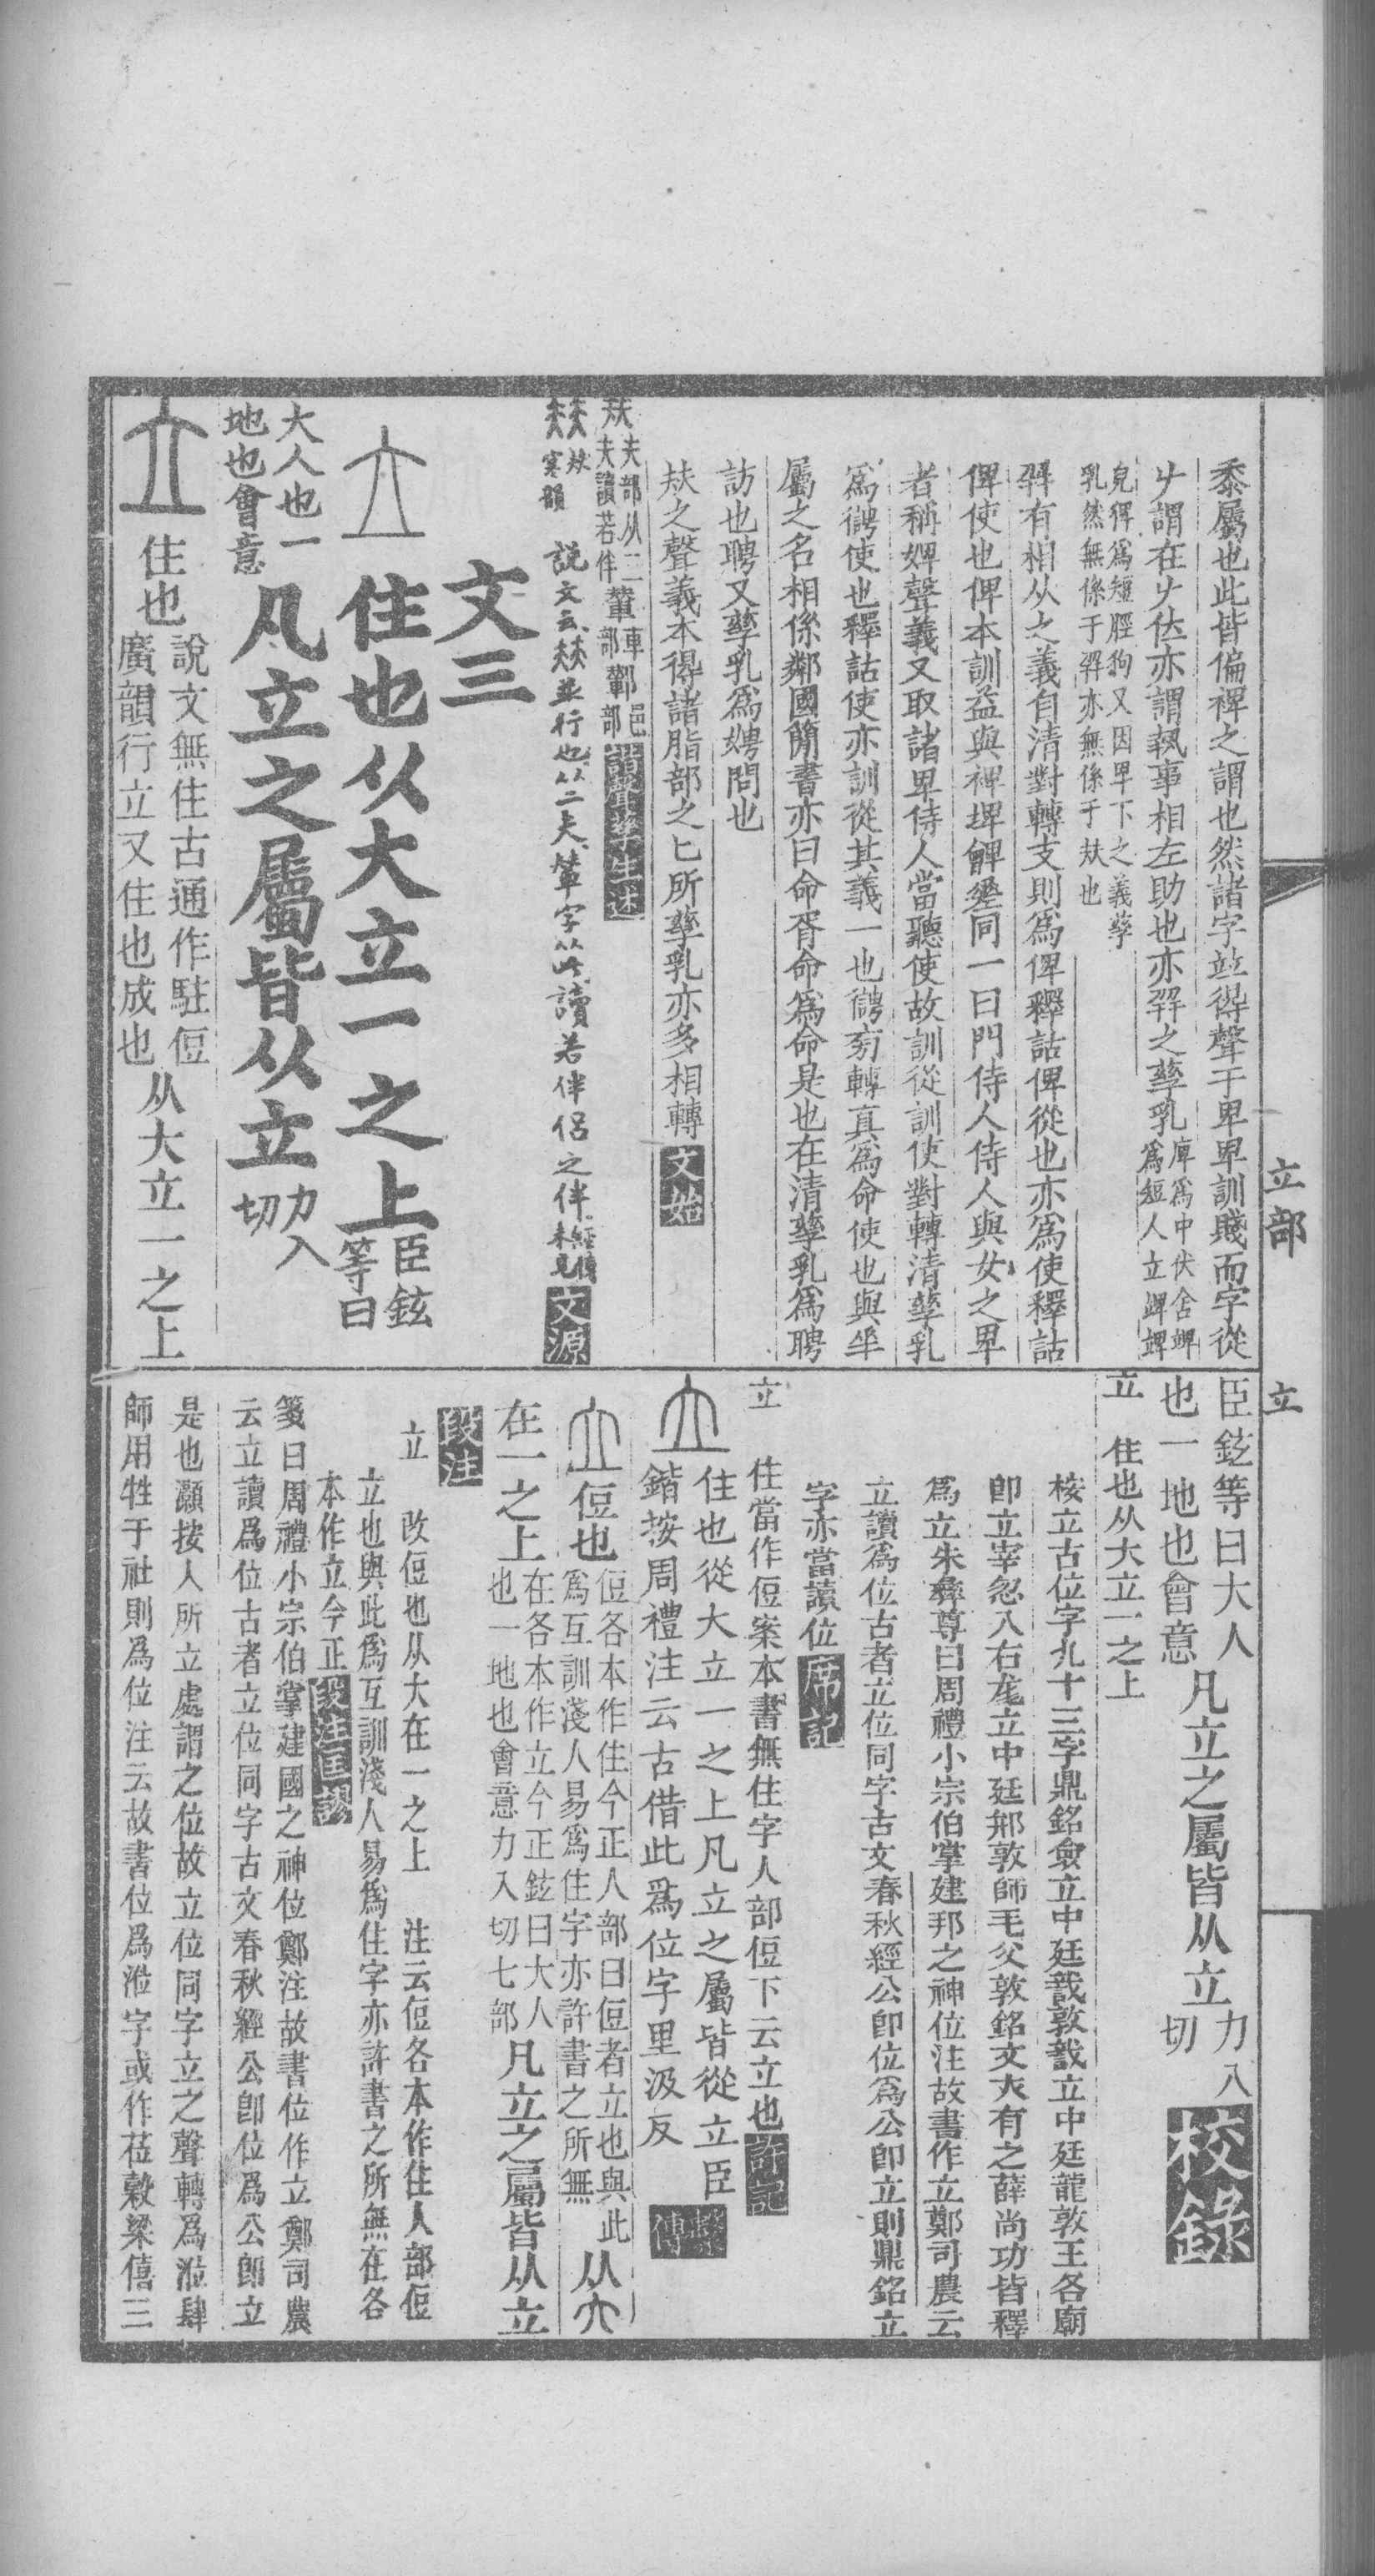 黍屬也此皆偏裨之謂也然諸字竝得聲于卑卑訓賤而字從
𠂇謂在𠂇佐亦謂執事相左助也亦𢍏之孳乳庳爲中伏舍
爲短人立
皃猈爲短脛狗又因卑下之義孳
乳然無係于𢍏亦無係于㚘也
𢍏有相从之義自清對轉支則爲俾釋詁俾從也亦爲使釋詁
俾使也俾本訓益與裨埤同一曰門侍人侍人與女之卑
者稱婢聲義又取諸卑侍人當聽使故訓從訓使對轉清孳乳
爲㑂使也釋詁使亦訓從其義一也㑂旁轉真爲命使也與
屬之名相係鄰國簡書亦曰命胥命爲命是也在清孳乳爲聘
訪也聘又孳乳爲娉問也
㚘之聲義本得諸脂部之匕所孳乳亦多相轉 文始
㚘夫部从二夫讀若伴 輦車部 鄻邑部 諧聲孳生述
㚘㚘寒韻 說文云㚘並行也从二夫輦字从此讀若伴侣之伴經傳未見 文源
文三
立 住也从大立一之上臣鉉等曰
大人也一地也會意 凡立之屬皆从立力入切
立 住也說文無住古通作駐侸
廣韻行立又住也成也从大立一之上
立部
立
臣鉉等曰大人
也一地也會意凡立之屬皆从立力入切 校錄
立 住也从大立一之上
桉立古位字凡十三字鼎銘僉立中廷㦰敦㦰立中廷龍敦王各廟
卽立宰忽入右龙立中廷邢敦師毛父敦銘文大有之薛尚功皆釋
爲立朱彝尊曰周禮小宗伯掌建邦之神位注故書作立鄭司農云
立讀爲位古者立位同字古文春秋經公卽位爲公卽立則鼎銘立
字亦當讀位 席記
立 住當作侸案本書無住字人部侸下云立也 許記
立 住也從大立一之上凡立之屬皆從立臣
鍇按周禮注云古借此爲位字里汲反 繫傳
立 侸也侸各本作住今正人部曰侸者立也與此
爲互訓淺人易爲住字亦許書之所無从大
在一之上在各本作立今正鉉曰大人
也一地也會意力入切七部凡立之屬皆从立
段注
立 改侸也从大在一之上 注云侸各本作住人部侸
立也與此爲互訓淺人易爲住字亦許書之所無在各
本作立今正 段注匡謬
箋曰周禮小宗伯掌建國之神位鄭注故書位作立鄭司農
云立讀爲位古者立位同字古文春秋經公卽位爲公卽立
是也灝按人所立處謂之位故立位同字立之聲轉爲涖肆
師用牲于社則爲位注云故書位爲涖字或作莅榖梁僖三